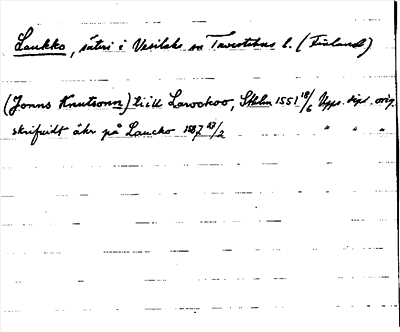 Laukko, säteri i Vesilaks sn Tavastehus l. (Finland)
(Jonns Knutsonn) tiill Lavockoo, Sthlm 1551 18/6 Upps. dipl. orig.
skrifuidt åhr på Laucko 1587 27/2 " " "